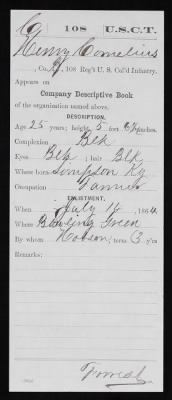 C | 108 | U.S.C.T.
Henry Cornelius
, Co. G, 108 Reg't U. S. Col'd Infantry.
Appears on
Company Descriptive Book
of the organization named above.
DESCRIPTION.
Age 25 years; height 5 feet 8½ inches.
Complexion Blk
Eyes Blk ; hair Blk
Where born Simpson Ky
Occupation Farmer
ENLISTMENT.
When July 16 , 1864.
Where Bowling Green
By whom Hobson ; term 3 y'rs
Remarks: